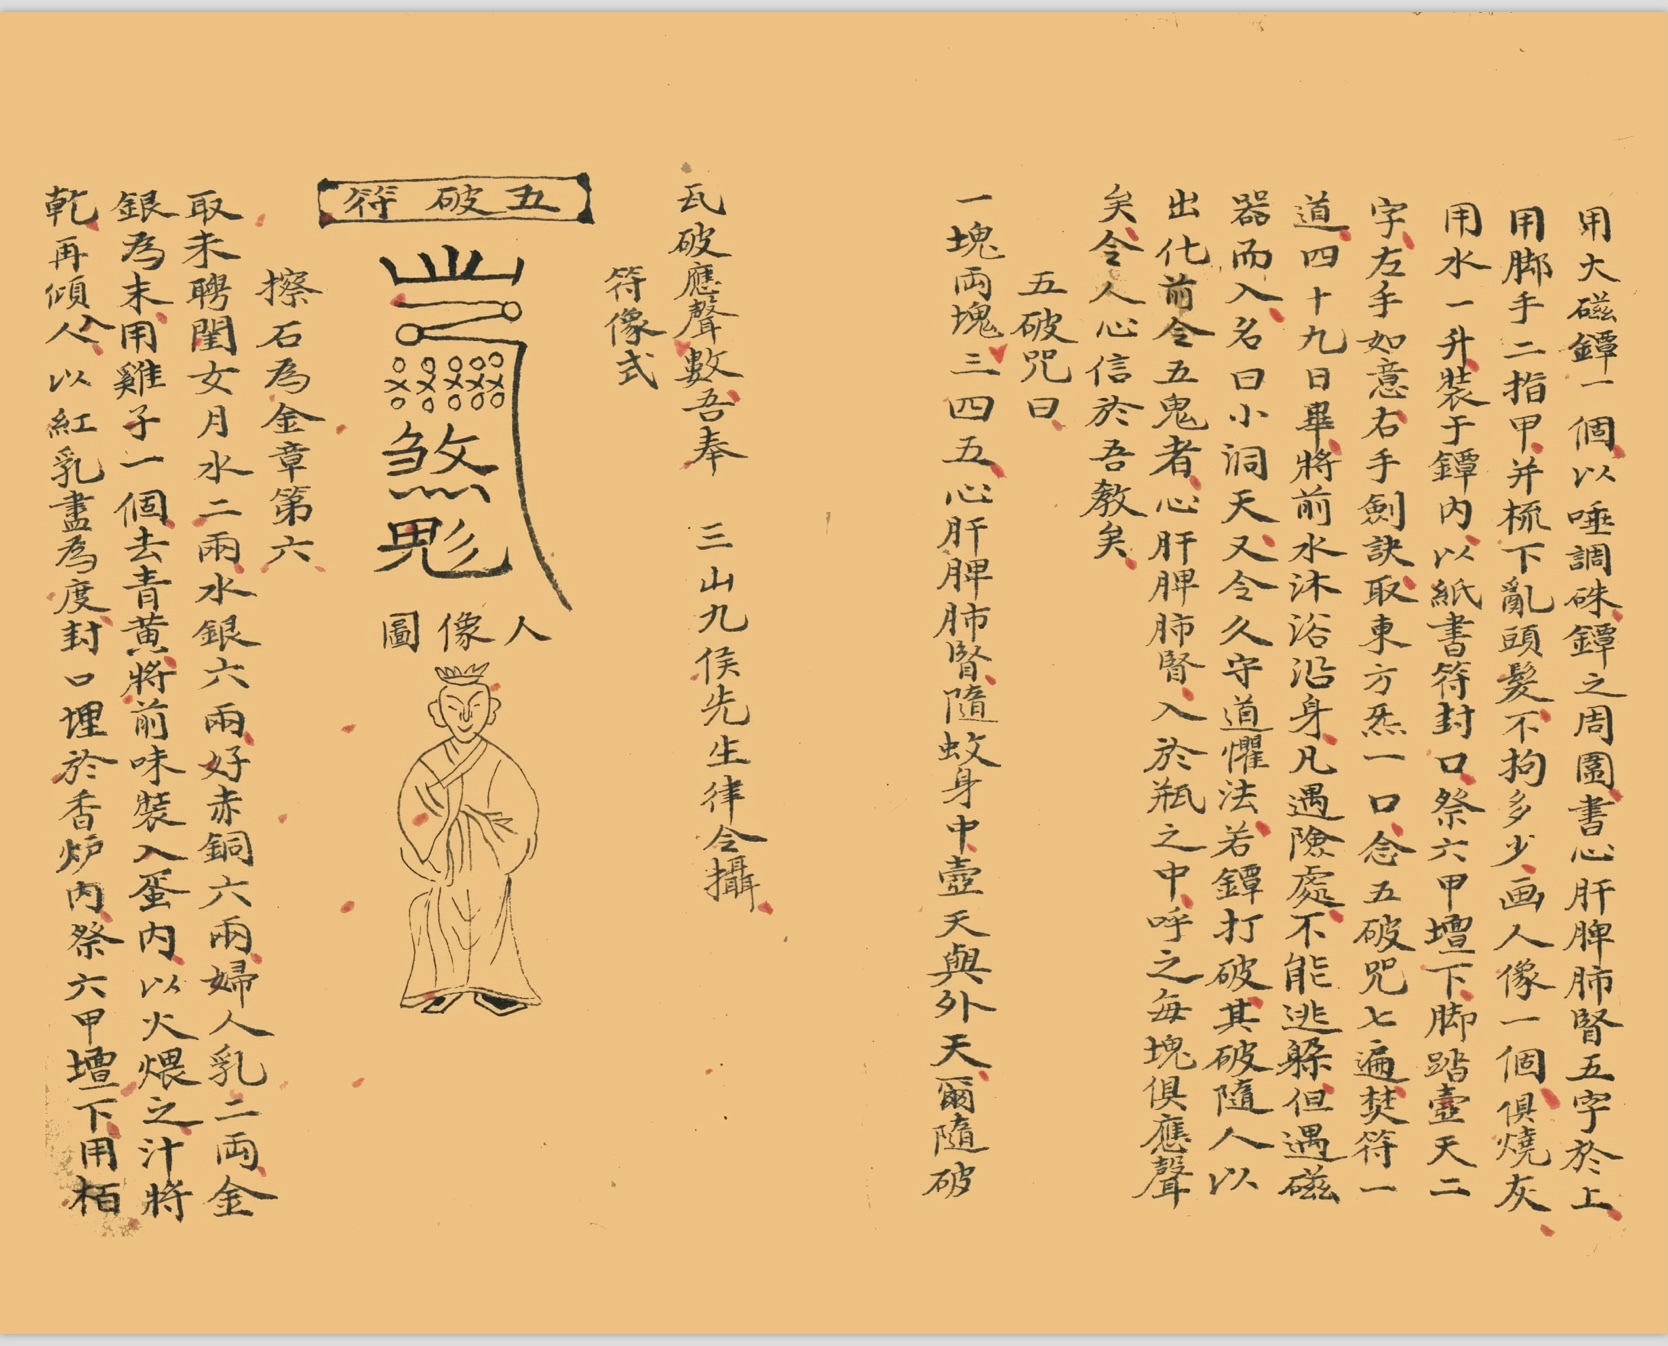 用大磁罈一個以唾調硃罈之周圍書心肝脾肺腎五字於上
用脚手二指甲并梳下亂頭髮不拘多少画人像一個俱燒灰
用水一升裝于罈內以紙書符封口祭六甲壇下脚踏壺天二
字左手如意右手劍訣取東方炁一口念五破咒七遍焚符一
道四十九日畢將前水沐浴沿身凡遇險處不能逃躲但遇磁
器而入名曰小洞天又令久守道懼法若罈打破其破隨人以
出化前令五鬼者心肝脾肺腎入於瓶之中呼之每塊俱應聲
矣令人心信於吾教矣
五破咒曰
一塊両塊三四五心肝脾肺腎隨蚊身中壺天與外天爾隨破
瓦破應聲數吾奉 三山九侯先生律令攝
符像式
五破符
煞
人像圖
擦石為金章第六
取未聘閨女月水二兩水銀六兩好赤銅六兩婦人乳二両金
銀為末用雞子一個去青黄將前味裝入蛋內以火煨之汁將
乾再傾入以紅乳盡為度封口埋於香炉內祭六甲壇下用栢